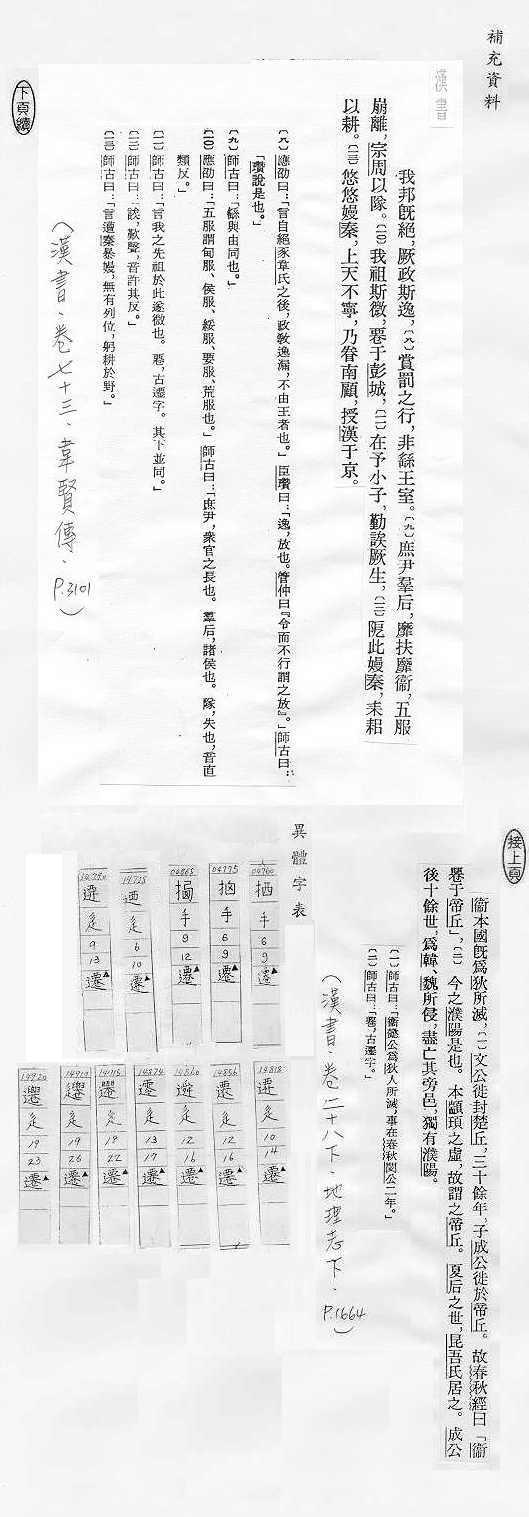 補充資料
漢書
我邦既絕，厥政斯逸，〔八〕賞罰之行，非繇王室。〔九〕庶尹羣后，靡扶靡衞，五服
崩離，宗周以隊。〔一0〕我祖斯微，䙴于彭城，〔一一〕在予小子，勤誒厥生，〔一二〕阸此嫚秦，耒耜
以耕。〔一三〕悠悠嫚秦，上天不寧，乃眷南顧，授漢于京。
〔八〕應劭曰：「言自絕豕韋氏之後，政教逸漏，不由王者也。」臣瓚曰：「逸，放也。管仲曰『令而不行謂之放』。」師古曰：
「瓚說是也。」
〔九〕師古曰：「繇與由同也。」
〔一0〕應劭曰：「五服謂甸服、侯服、綏服、要服、荒服也。」師古曰：「庶尹，衆官之長也。羣后，諸侯也。隊，失也，音直
類反。」
〔一一〕師古曰：「言我之先祖於此遂微也。䙴，古遷字。其下並同。」
〔一二〕師古曰：「誒，歎聲，音許其反。」
〔一三〕師古曰：「言遭秦暴嫚，無有列位，躬耕於野。」
（漢書．卷七十三．韋賢傳．P.3101）
下頁續
接上頁
衞本國既為狄所滅，〔一〕文公徙封楚丘，三十餘年，子成公徙於帝丘。故春秋經曰「衞
䙴于帝丘」，〔二〕今之濮陽是也。本顓頊之虛，故謂之帝丘。夏后之世，昆吾氏居之。成公
後十餘世，為韓、魏所侵，盡亡其旁邑，獨有濮陽。
〔一〕師古曰：「衞懿公為狄人所滅，事在春秋閔公二年。」
〔二〕師古曰：「䙴，古遷字。」
（漢書．卷二十八下．地理志下．P.1664）
異體字表
04760 拪 手 6 9 遷
04775 手 6 9 遷
04865 手 9 12 遷
14718 迺 辵 6 10 遷
辵 9 13 遷
14818 辵 10 14 遷
14856 辵 12 16 遷
14860 辵 12 16 遷
14874 辵 13 17 遷
辵 19 22 遷
辵 19 遷
14920 辵 19 23 遷